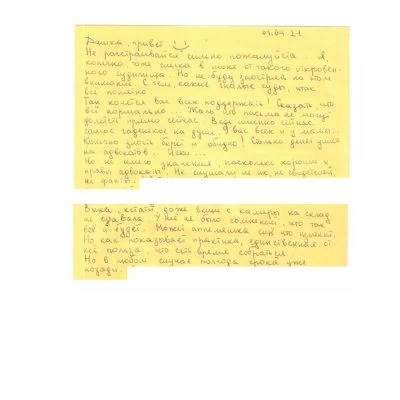 01.04.21
Дашка, привет :)
Не расстраивайся сильно пожалуйста. Я,
конечно, тоже слегка в шоке от такого откровен-
ного судилища. Но не буду заострять на этом
внимание. С тем, какие гнилые суды, итак
всё понятно.
Так хочется вас всех поддержать! Сказать что
всё нормально... Жаль, что письма не могут
долететь прямо сейчас. Ведь именно сейчас
самое гаденькое на душе. У вас всех и у мамы...
Конечно злость берёт и обидно! Столько денег ушло
на адвокатов... Иски...
Но не имело значения, насколько хороши и
правы адвокаты. Не слушали ни их, ни свидетелей,
ни факты.
Вика, кстати, даже вещи с камеры на склад
не сдавала. У неё не было сомнений, что так
всё и будет. Может аппеляшка суд что изменит.
Но как показывает практика, единственная от
неё польза, что есть время собраться.
Но в любом случае полгода срока уже
позади.